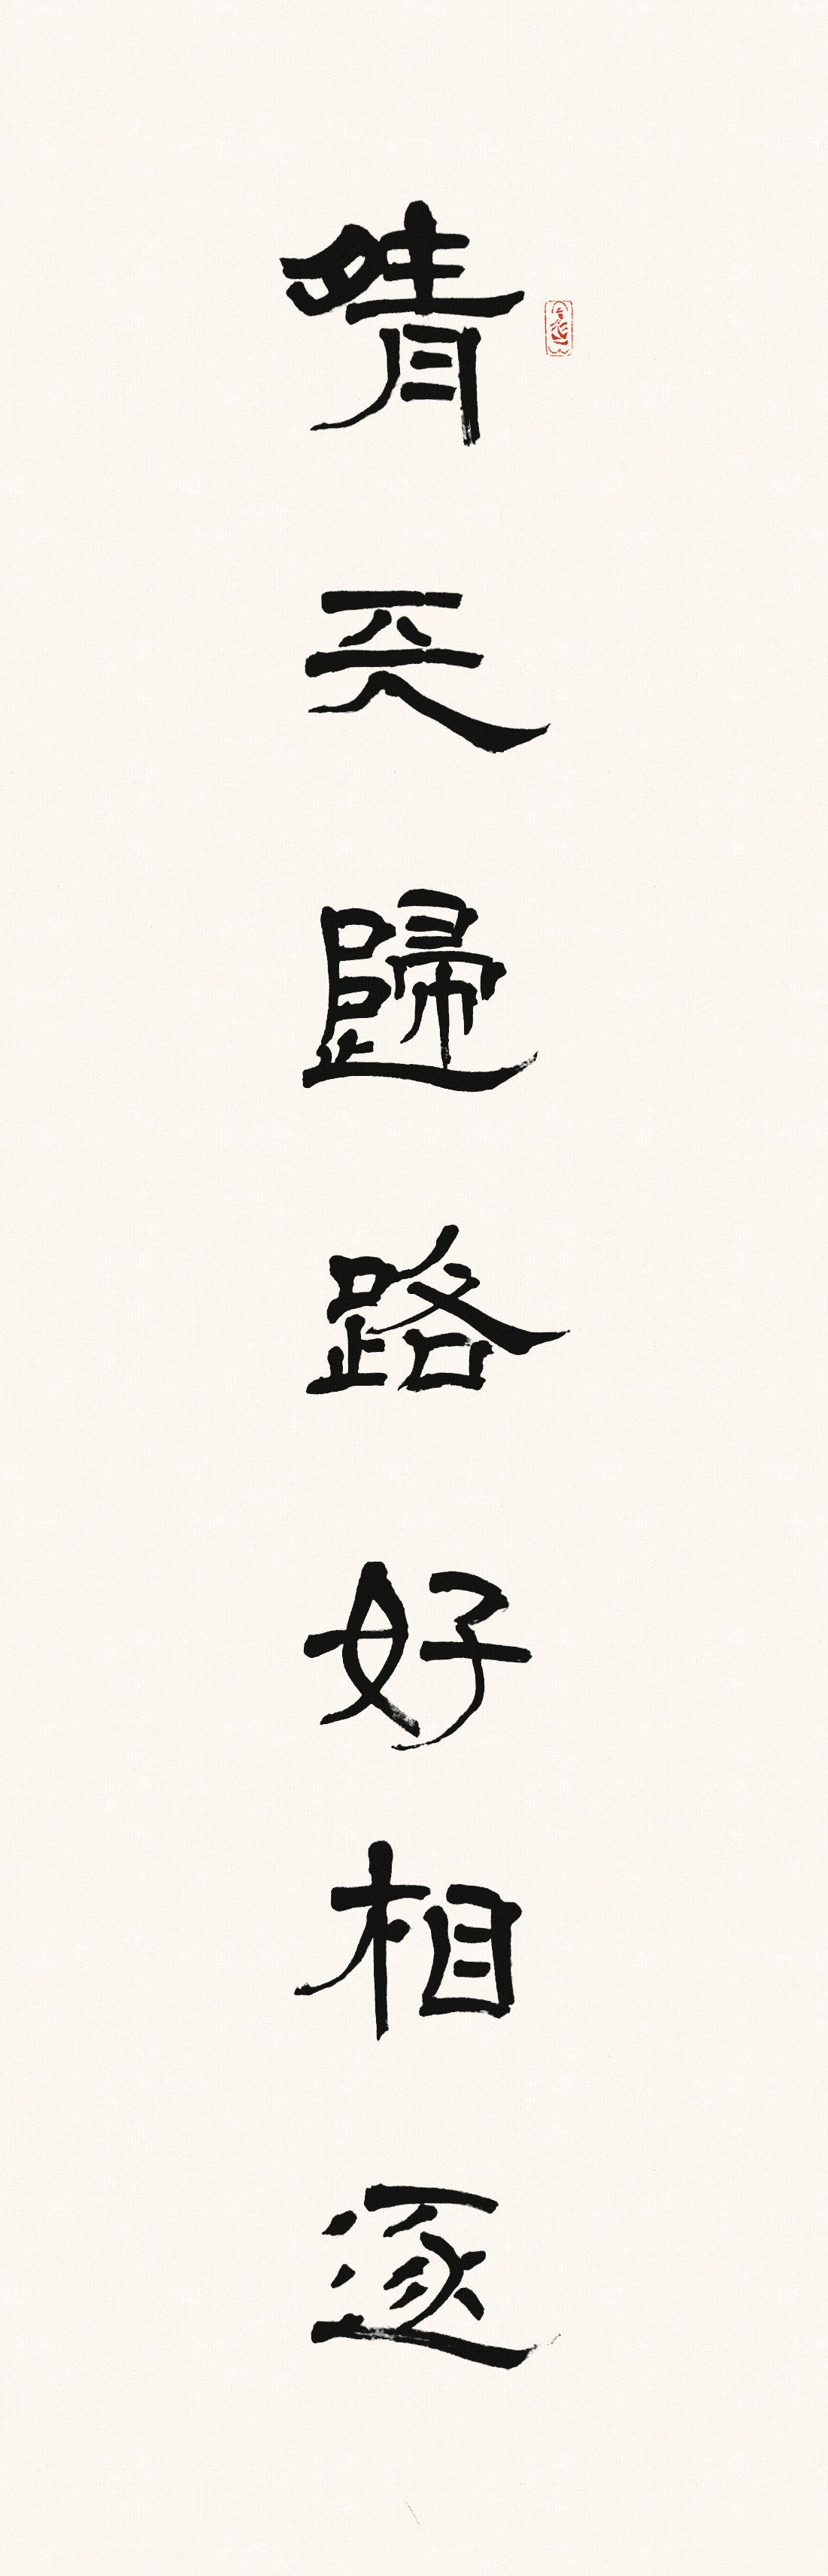 晴天歸路好相逐